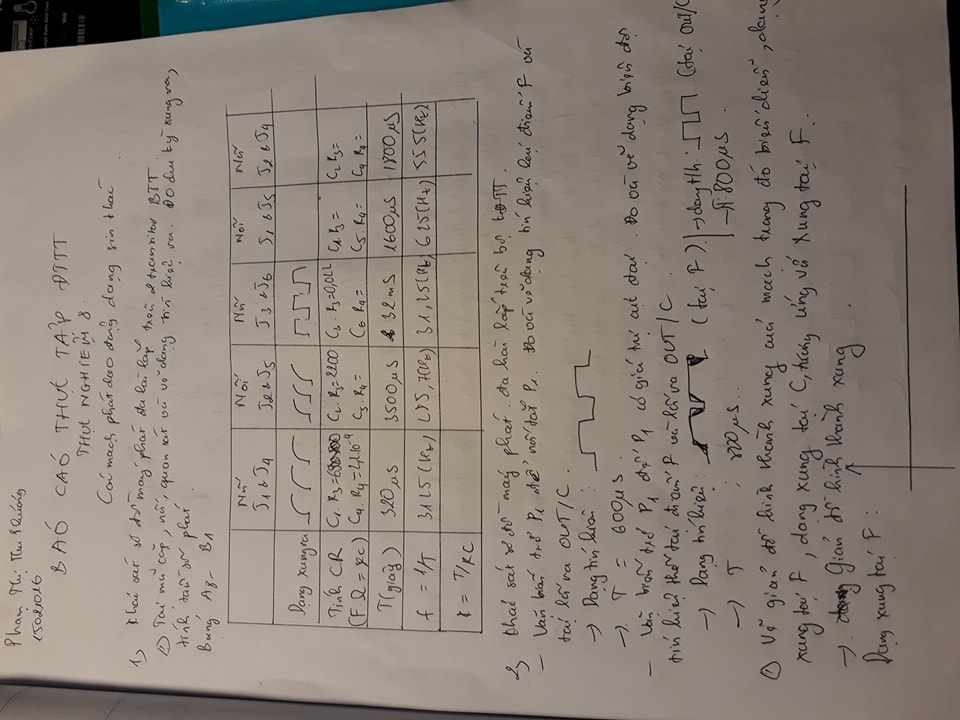 Phạm Thị Thu Phương
15021016
BÁO CÁO THỰC TẬP ĐTTT
THỰC NGHIỆM 8
Các mạch phát dao động dạng sin khác
1, Khảo sát sơ đồ máy phát đa hài lắp trên 2 transitor BTT
Tại mỗi cặp, nối, quan sát và vẽ dạng tín hiệu ra. Đo chu kỳ xung ra,
tính tần số phát.
Bảng A8 - B1
Nối J1 & J4 | Nối J2 & J5 | Nối J3 & J6 | Nối J1 & J5 | Nối J2 & J4
Dạng xung ra
Tính CR C1. R3 = C2. R3 = 2200 C3. R3 = 0,022 C1. R3 = C2 R3 =
(F.Ω = sec) C4. R4 = 2,2.10⁻⁴ C5. R4 = C6 R4 = C5. R4 = C4 R4 =
T(giây) 320μS 3500μS 32mS 1600μS 1800μS
f = 1/T 3125(Hz) 285,7(Hz) 31,25(Hz) 625(Hz) 555(Hz)
k = T/RC
2, Khảo sát sơ đồ máy phát đa hài lắp trên bộ KĐTT.
- Vặn biến trở P1 để nối tắt P1. Đo và vẽ dạng tín hiệu tại điểm F và
tại lối ra OUT/C.
→ Dạng tín hiệu :
→ T = 600μS.
- Vặn biến trở P1 để P1 có giá trị cực đại. Đo và vẽ dạng biên độ
tín hiệu thế tại điểm F và lối ra OUT/C.
→ Dạng tín hiệu : (tại F) → dạng t/h : (tại OUT/C
→ T : 800μS. → T: 800μS.
Vẽ giản đồ hình thành xung của mạch trong đó biểu diễn, dạng
xung tại F, dạng xung tại C, tương ứng với xung tại F.
→ Giản đồ hình thành xung.
Dạng xung tại F :